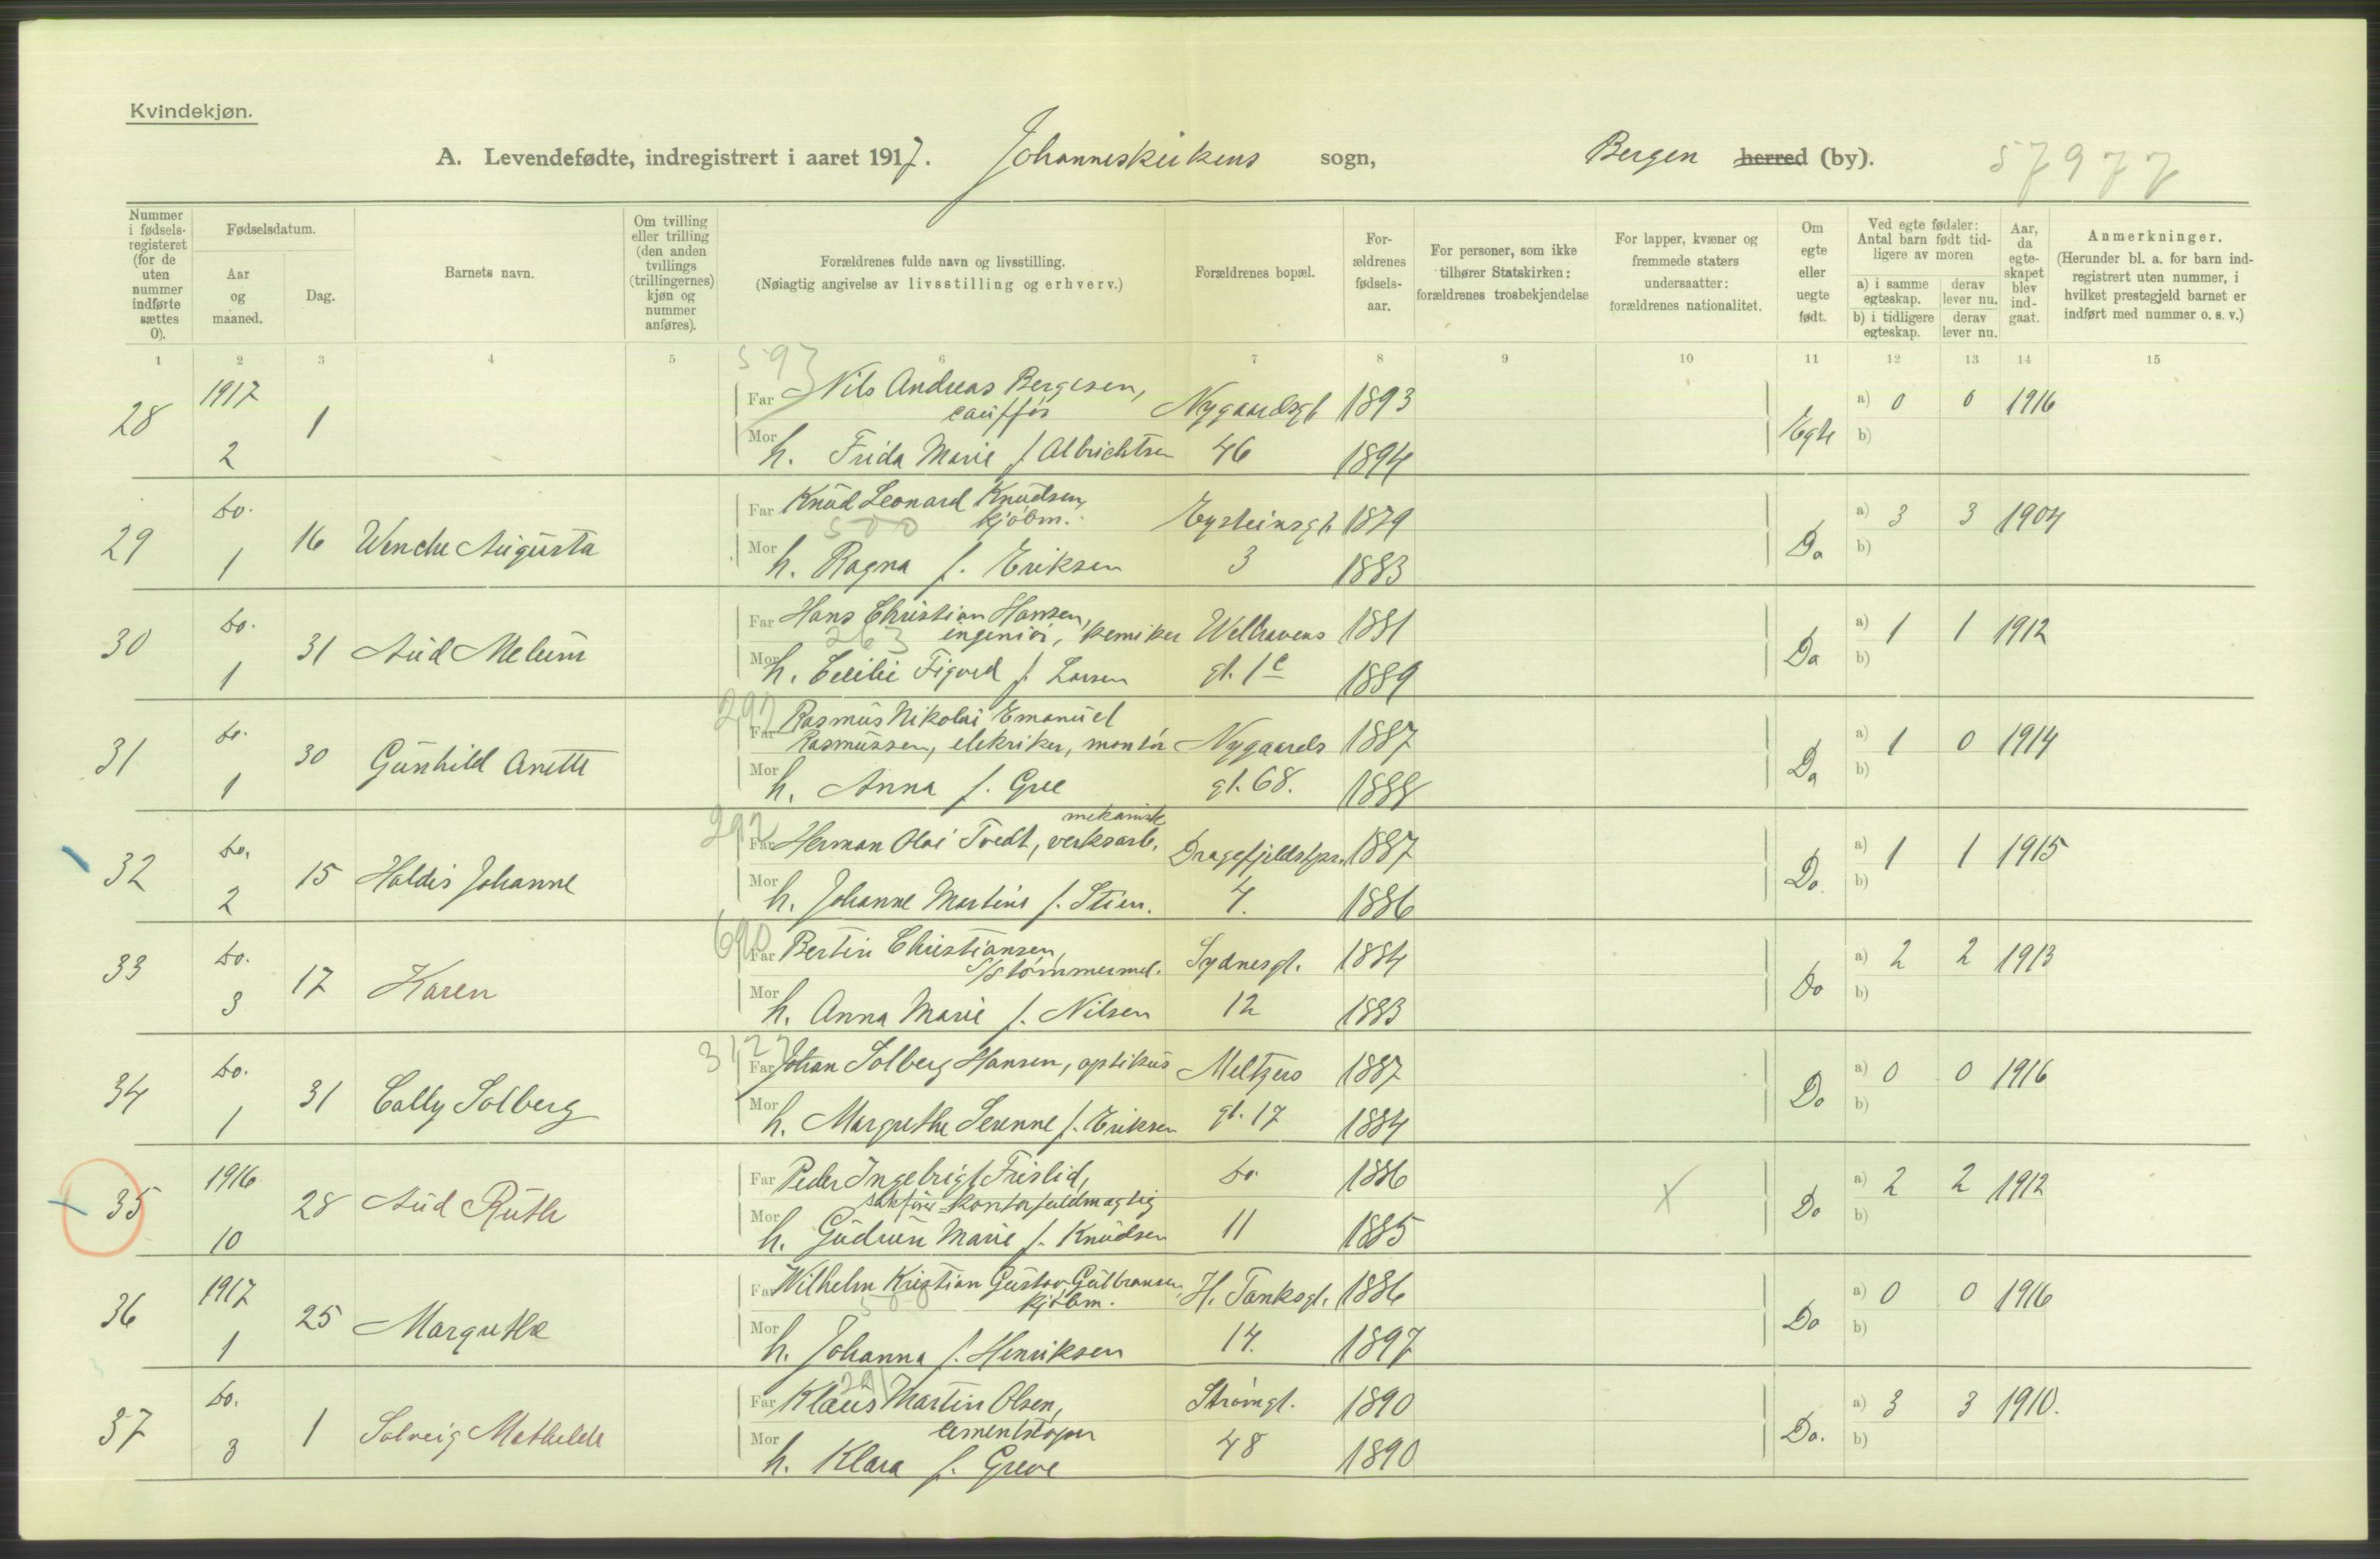 Kvindekjøn.
A. Levendefødte, indregistrert i aaret 1917. Johanneskirkens sogn, Bergen herred (by). 57977
Nummer i fødselsregisteret (for de uten nummer indførte sættes 0).
Fødselsdatum.
Aar og maaned.
Dag.
Barnets navn.
Om tvilling eller trilling (den anden tvillings (trillingernes) kjøn og nummer anføres).
Forældrenes fulde navn og livsstilling.
(Nøiagtig angivelse av livsstilling og erhverv.)
Forældrenes bopæl.
Forældrenes fødselsaar.
For personer, som ikke tilhører Statskirken: forældrenes trosbekjendelse
For lapper, kvæner og fremmede staters undersaatter: forældrenes nationalitet.
Om egte eller uegte født.
Ved egte fødsler: Antal barn født tidligere av moren
a) i samme egteskap. derav lever nu.
b) i tidligere egteskap. derav lever nu.
Aar, da egteskapet blev indgaat.
Anmerkninger.
(Herunder bl. a. for barn indregistrert uten nummer, i hvilket prestegjeld barnet er indført med nummer o. s. v.)
1 2 3 4 5 6 7 8 9 10 11 12 13 14 15
597
28 1917 2 1 Far Nils Andreas Bergesen, Nygaardsgt 1893 Egte a) 0 0 1916
cauffør
Mor h. Frida Marie f Albrichtsen 46 1894 b)
29 do. 1 16 Wenche Augusta Far Knud Leonard Knudsen, Eysteinsgt. 1879 Do a) 3 3 1904
500 kjøbm.
Mor h. Ragna f. Eriksen 3 1883 b)
30 do. 1 31 Aud Melum Far Hans Christian Hansen, Welhavens 1881 Do a) 1 1 1912
263 ingeniør, kemiker
Mor h. Cecilie Figved f. Larsen gt. 1c 1889 b)
297
31 do. 1 30 Gunhild Anette Far Rasmus Nikolai Emanuel
Rasmussen, elektriker, montør Nygaards 1887 Do a) 1 0 1914
Mor h. Anna f. Gree gt. 68. 1888 b)
297 mekanisk
32 do. 2 15 Haldis Johanne Far Herman Olai Tvedt, verksarb. Dragefjeldstpr. 1887 Do. a) 1 1 1915
Mor h. Johanne Martine f. Stien. 4. 1886 b)
690
33 do. 3 17 Karen Far Bertin Christiansen, Sydnesgt. 1884 Do a) 2 2 1913
s/s tømmermd.
Mor h. Anna Marie f. Nilsen 12 1883 b)
34 do. 1 31 Cally Solberg Far Johan Solberg Hansen, optikus Meltzers 1887 Do a) 0 0 1916
Mor h. Margrethe Serenne f. Eriksen gt. 17 1884 b)
35 1916 10 28 Aud Ruth Far Peder Ingebrigt Frislid, do 1886 X Do a) 2 2 1912
sakfører-kontorfuldmægtig
Mor h. Gudrun Marie f. Knudsen 11 1885 b)
36 1917 1 25 Margrethe Far Wilhelm Kristian Gustav Gulbransen, H. Tanksgt. 1886 Do a) 0 0 1916
kjøbm.
Mor h. Johanna f. Henriksen 14. 1897 b)
37 do. 3 1 Solveig Mathilde Far Klaus Martin Olsen, Strømgt. 1890 Do. a) 3 3 1910.
cementstøper
Mor h. Klara f. Greve 48 1890 b)